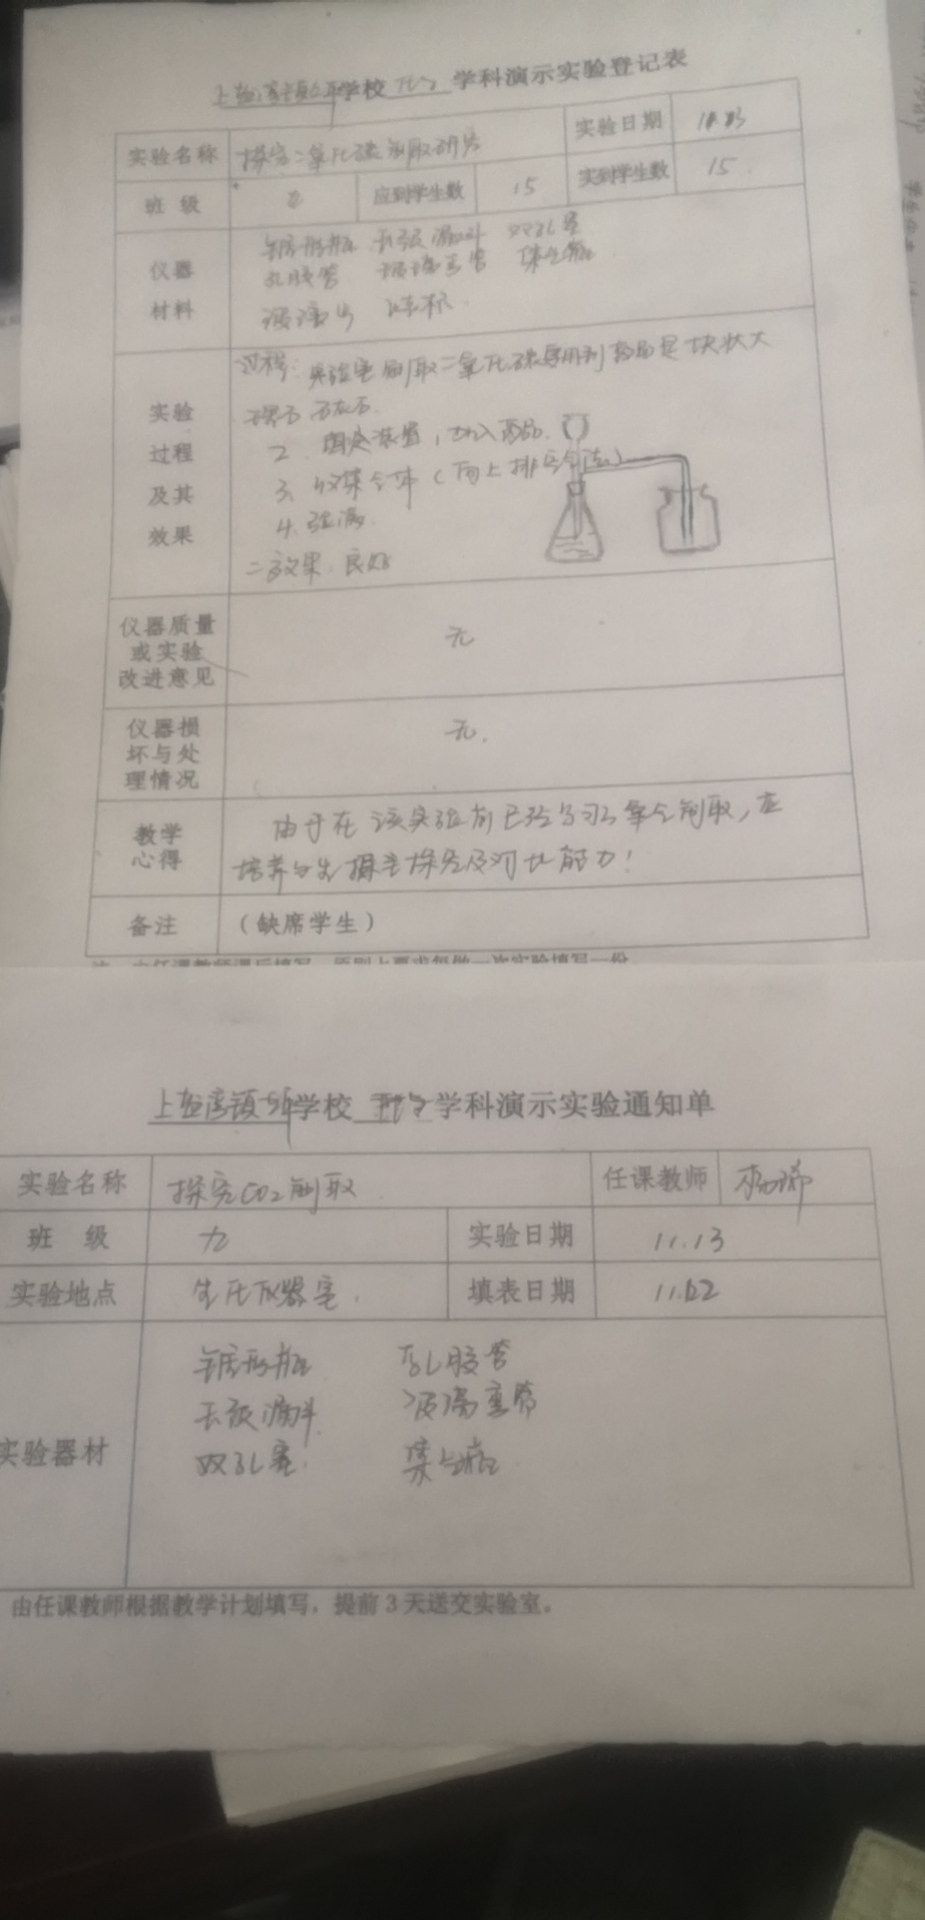 学校 学科演示实验登记表
实验名称 探究二氧化碳制取研究 实验日期
班 级 九 应到学生数 15 实到学生数 15
仪器 锥形瓶 长颈漏斗 双孔塞
乳胶管 玻璃导管 集气瓶
材料
过程: 实验室制取二氧化碳 药品是块状大
实验 理石 石灰石
过程 2. 固定装置,加入药品
及其 3. 收集气体(向上排空气法)
效果 4. 验满
二 效果: 良好
仪器质量
或实验 无
改进意见
仪器损
坏与处 无.
理情况
教学 由于在该实验前已经学习了氧气制取,在
心得 培养学生 探究及对比能力!
备注 (缺席学生)
学校 学科演示实验通知单
实验名称 探究CO2制取 任课教师
班 级 九 实验日期 11.13
实验地点 生化仪器室. 填表日期
锥形瓶 乳胶管
长颈漏斗 玻璃导管
实验器材 双孔塞 集气瓶
由任课教师根据教学计划填写,提前3天送交实验室。